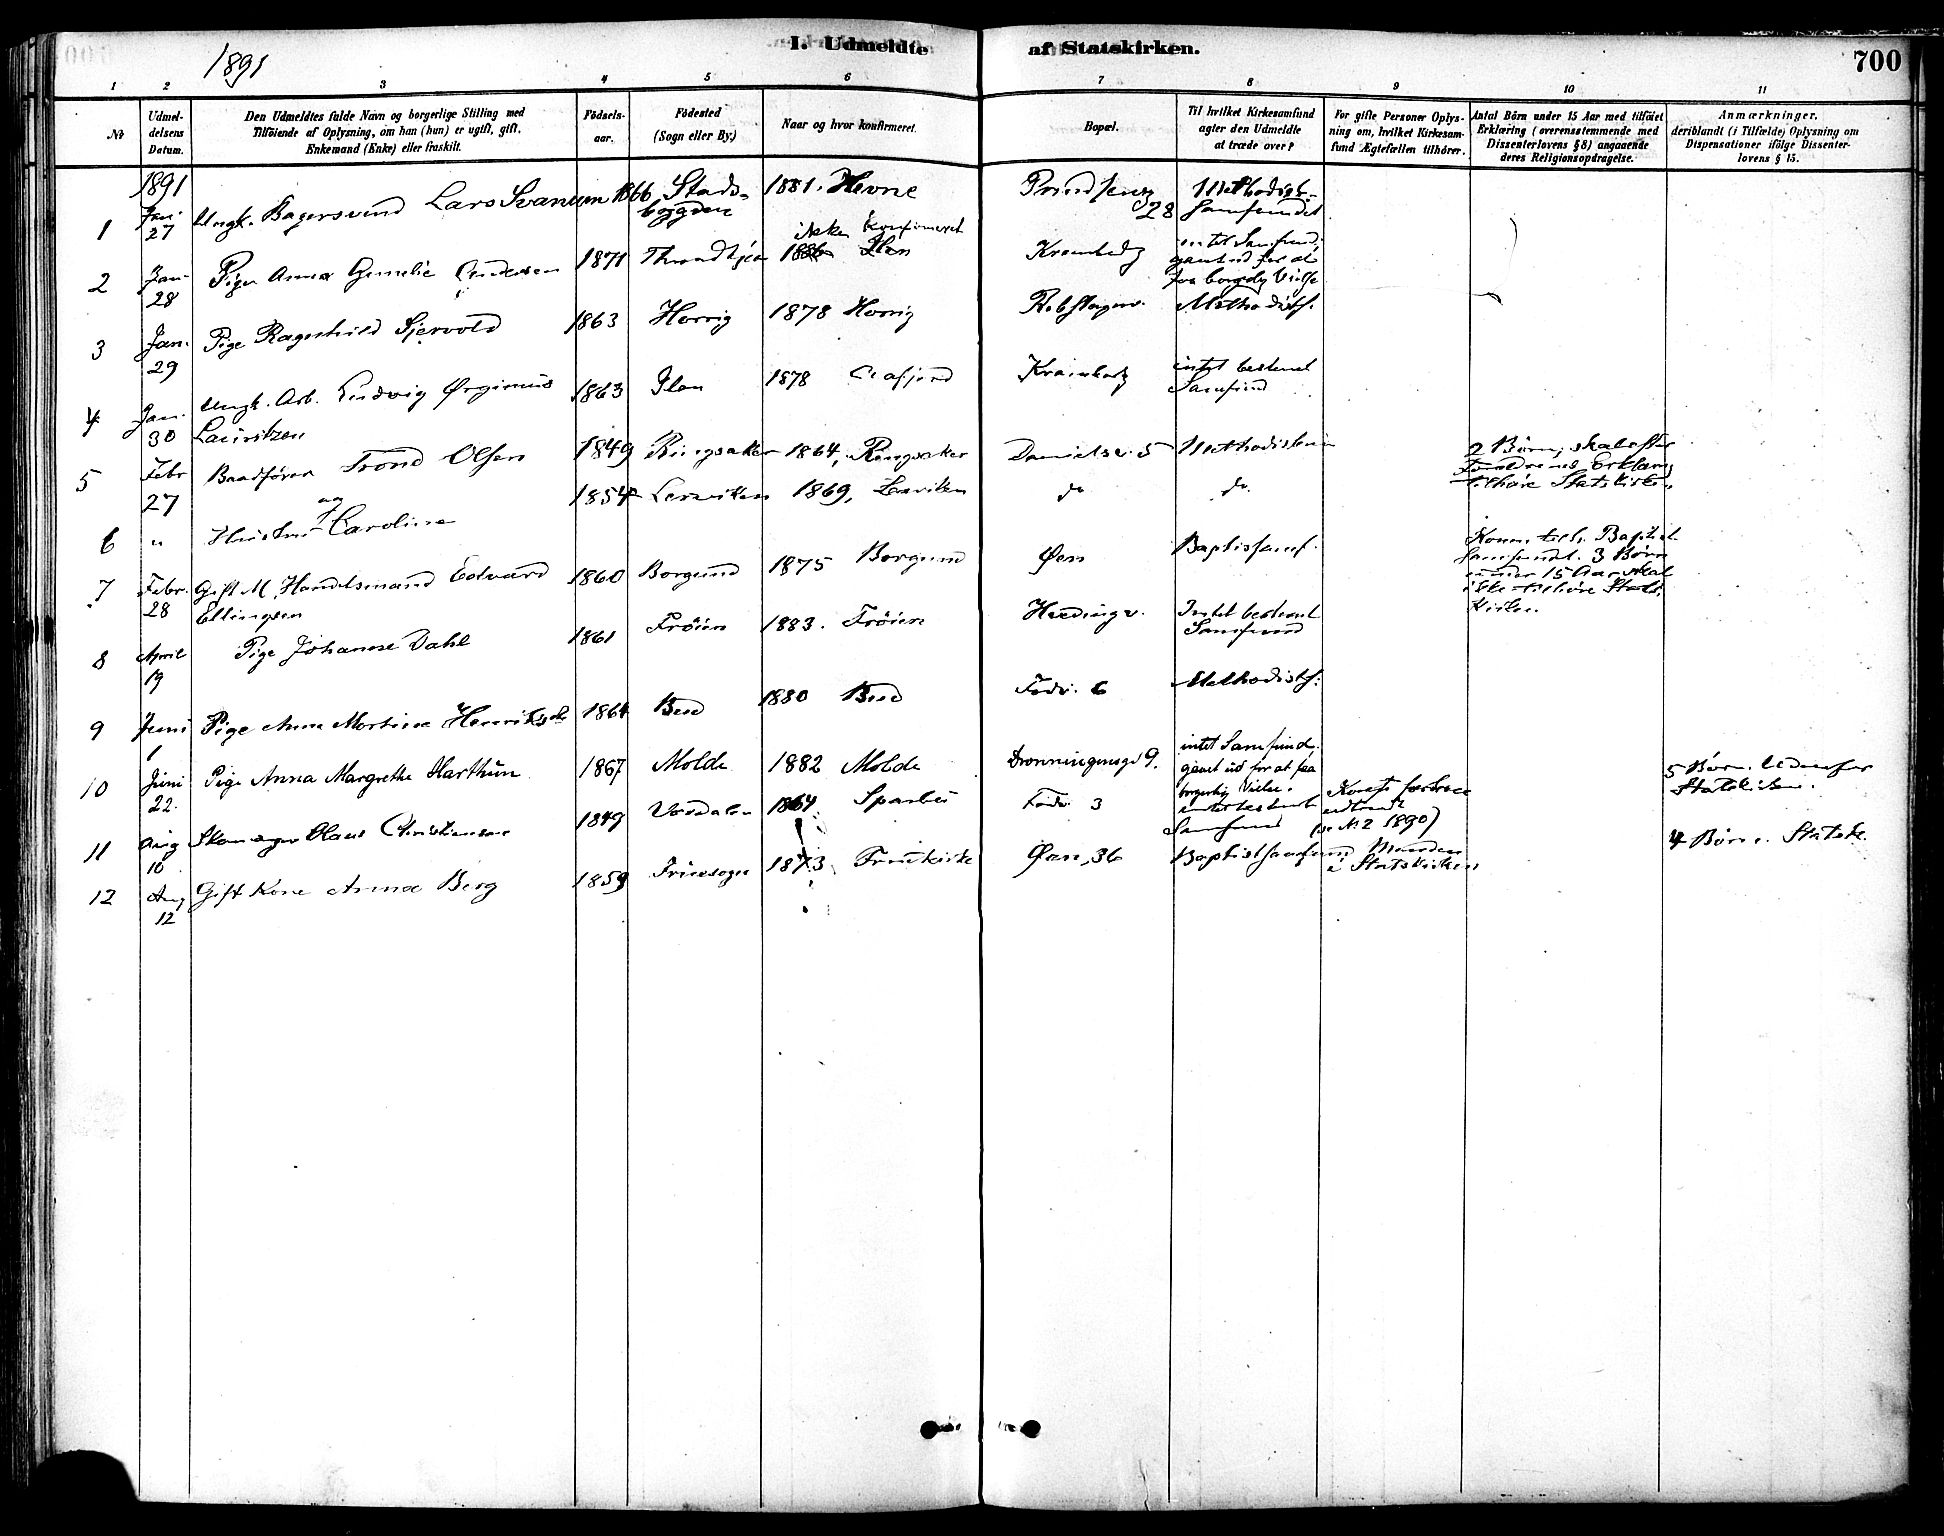 I. Udmeldte af Statskirken.
700
1891
1 2 3 4 5 6 7 8 9 10 11
No
Udmel-
delsens
Datum.
Den Udmeldtes fulde Navn og borgerlige Stilling med
Tilføiende af Oplysning, om han (hun) er ugift, gift.
Enkemand (Enke) eller fraskilt.
Födsels-
aar.
Födested
(Sogn eller By.)
Naar og hvor konfirmeret.
Bopæl.
Til hvilket Kirkesamfund
agter den Udmeldte
at træde over?
For gifte Personer Oplys-
ning om, hvilket Kirkesam-
fund Ægtefællen tilhörer.
Antal Börn under 15 Aar med tilföiet
Erklæring (overensstemmende med
Dissenterlovens § 8) angaaende
deres Religionsopdragelse.
Anmærkninger,
deriblandt (i Tilfælde) Oplysning om
Dispensationer ifölge Dissenter-
lovens § 15.
1891
1 Jan. 27 Ungk. Bagersvend Lars Svanem 1866 Stads-
bygden 1881. Hevne 28 Methodist-
Samfundet
2 Jan 28 Pige Anna Andersen 1871 Throndhjem ikke konfirmeret
1886 Ilen intet Samfund,
gaaet ud for at
faa borgerlig Vielse
3 Jan. 29 Pige Ragnhild Sjervold 1863 Horrig 1878 Horrig Methodists.
4 Jan. 30 Ungk. Arb. Ludvig Ørginius
Lauritzen 1863 Ilen 1878 intet bestemt
Samfund
5 Febr 27 Trond Olsen 1849 Ringsaker 1864, Ringsaker Danielsv. 5 Methodisterne 2 Børn, skal efter
Forældrenes Erklæring
tilhøre Statskirken
6 " og
Hustru Caroline 1854 1869, do do.
7 Febr. 28 Gift M. Handelsmand Edvard
Ellingsen 1860 Borgund 1875 Borgund Øen Baptistsamf. Baptist
Samfundet. 3 Børn
under 15 Aar skal
ikke tilhøre Stats-
kirken.
8 April 19 Pige Johanne Dahl 1861 Frøien 1883. Frøien Intet bestemt
Samfund
9 Juni 1 Pige Anna Martina Henriksen 1864 Bud 1880 Bud 6 Methodists.
10 Juni 22. Pige Anna Margrethe Harthun 1867 Molde 1882 Molde Dronningensgd 9. intet Samfund.
gaaet ud for at faa
borgerlig Vielse.
11 Aug 10 Skomager Olaus Christiansen 1849 Værdalen 1864 Sparbu 3 intet bestemt
Samfund
(se N. 2 1890) 5 Børn. Udenfor
Statskirken.
12 Aug 12 Gift Kone Anna Berg 1859 1873 Øen, 36 Baptistsamfund Manden
i Statskirken 4 Børn i Statsk.